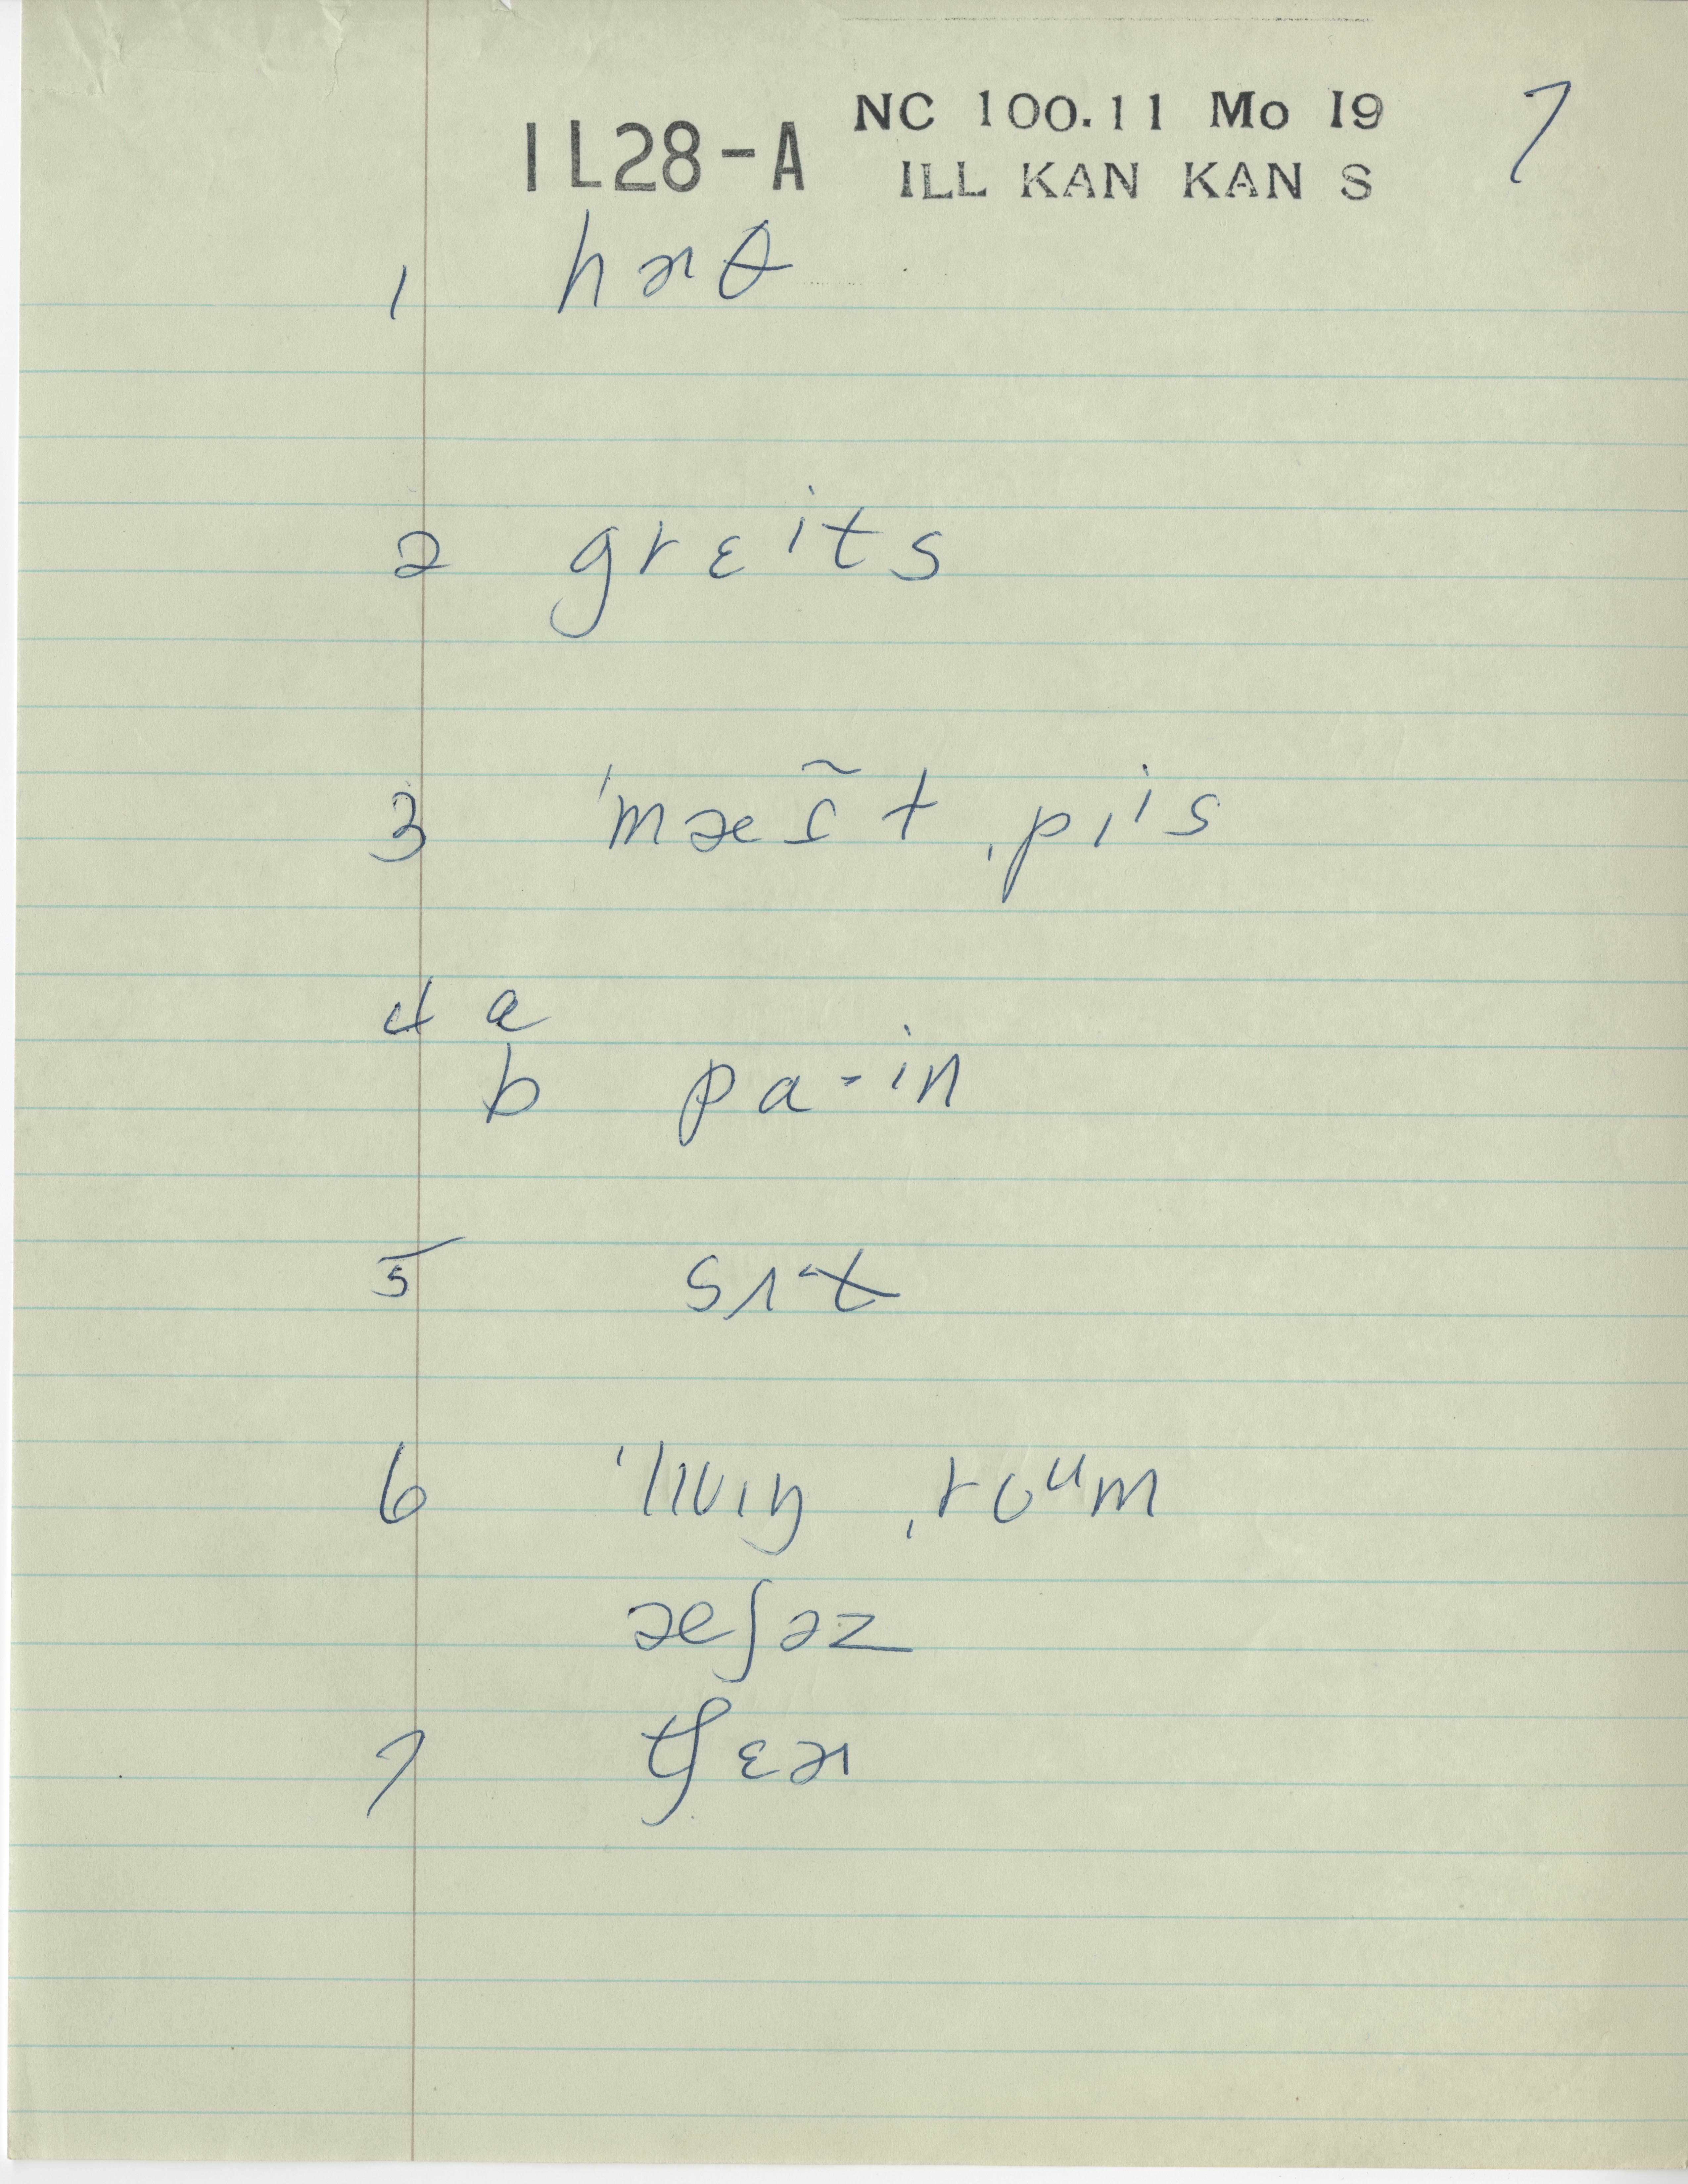 IL28-A NC 100.11 Mo I9 7
ILL KAN KAN S
1 hɚθ
2 grɛⁱts
3 ˈmæs̃t ˌpɪⁱs
4 a
b pa-in
5 sʌ·t
6 ˈlɪvɪŋ ˌrʊᵘm
æʃəz
7 tʃɛɚ